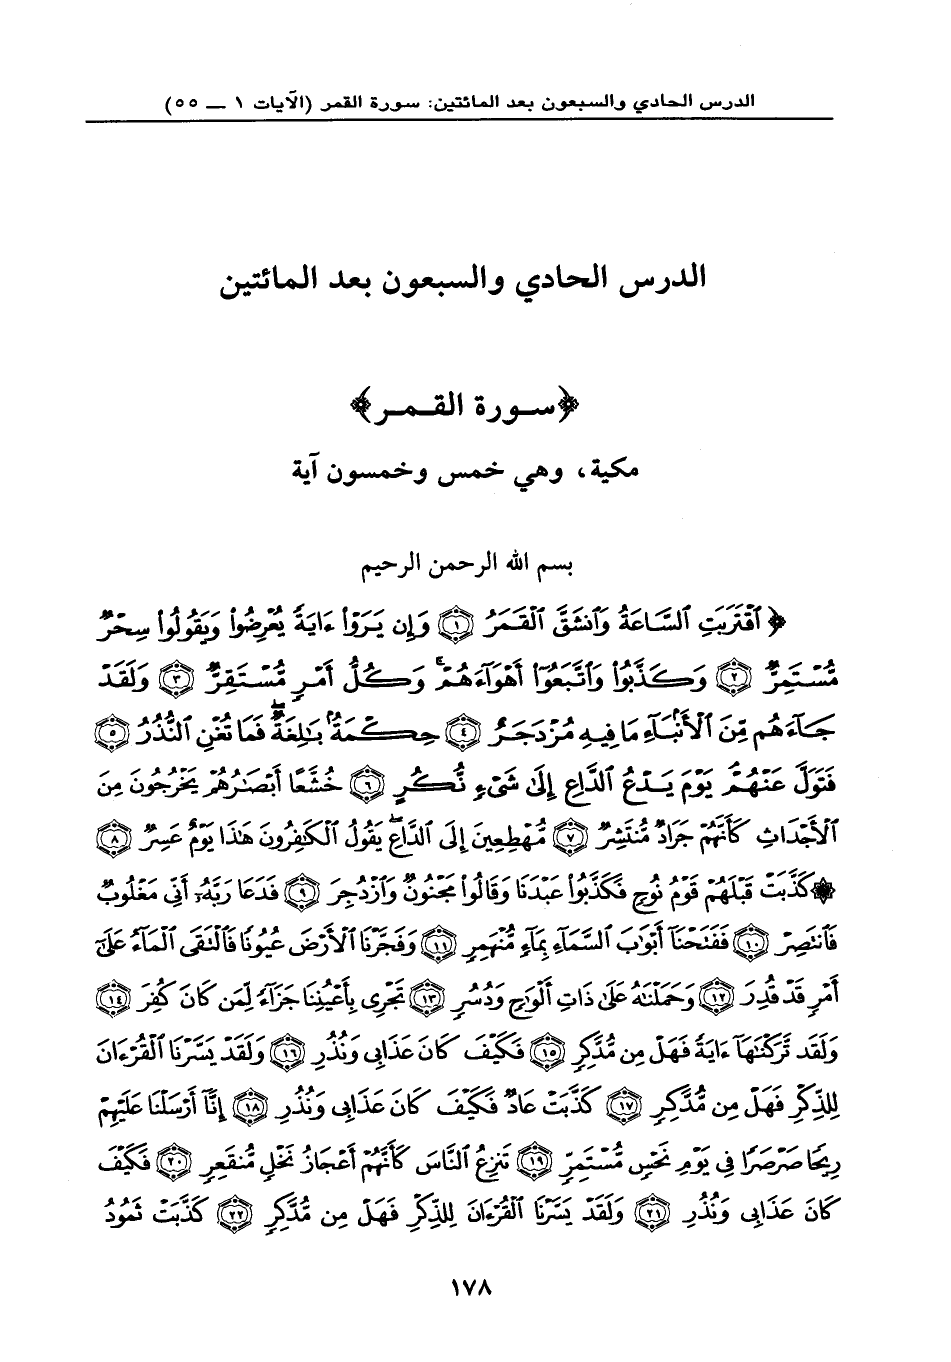 الدرس الحادي والسبعون بعد المائتين: سورة القمر (الآيات ١ ـ ٥٥)
الدرس الحادي والسبعون بعد المائتين
﴿سورة القمر﴾
مكية، وهي خمس وخمسون آية
بسم الله الرحمن الرحيم
﴿ ٱقۡتَرَبَتِ ٱلسَّاعَةُ وَٱنشَقَّ ٱلۡقَمَرُ ١ وَإِن يَرَوۡاْ ءَايَةٗ يُعۡرِضُواْ وَيَقُولُواْ سِحۡرٞ
مُّسۡتَمِرّٞ ٢ وَكَذَّبُواْ وَٱتَّبَعُوٓاْ أَهۡوَآءَهُمۡۚ وَكُلُّ أَمۡرٖ مُّسۡتَقِرّٞ ٣ وَلَقَدۡ
جَآءَهُم مِّنَ ٱلۡأَنۢبَآءِ مَا فِيهِ مُزۡدَجَرٌ ٤ حِكۡمَةُۢ بَٰلِغَةٞۖ فَمَا تُغۡنِ ٱلنُّذُرُ ٥
فَتَوَلَّ عَنۡهُمۡۘ يَوۡمَ يَدۡعُ ٱلدَّاعِ إِلَىٰ شَيۡءٖ نُّكُرٍ ٦ خُشَّعًا أَبۡصَٰرُهُمۡ يَخۡرُجُونَ مِنَ
ٱلۡأَجۡدَاثِ كَأَنَّهُمۡ جَرَادٞ مُّنتَشِرٞ ٧ مُّهۡطِعِينَ إِلَى ٱلدَّاعِۖ يَقُولُ ٱلۡكَٰفِرُونَ هَٰذَا يَوۡمٌ عَسِرٞ ٨
۞كَذَّبَتۡ قَبۡلَهُمۡ قَوۡمُ نُوحٖ فَكَذَّبُواْ عَبۡدَنَا وَقَالُواْ مَجۡنُونٞ وَٱزۡدُجِرَ ٩ فَدَعَا رَبَّهُۥٓ أَنِّي مَغۡلُوبٞ
فَٱنتَصِرۡ ١٠ فَفَتَحۡنَآ أَبۡوَٰبَ ٱلسَّمَآءِ بِمَآءٖ مُّنۡهَمِرٖ ١١ وَفَجَّرۡنَا ٱلۡأَرۡضَ عُيُونٗا فَٱلۡتَقَى ٱلۡمَآءُ عَلَىٰٓ
أَمۡرٖ قَدۡ قُدِرَ ١٢ وَحَمَلۡنَٰهُ عَلَىٰ ذَاتِ أَلۡوَٰحٖ وَدُسُرٖ ١٣ تَجۡرِي بِأَعۡيُنِنَا جَزَآءٗ لِّمَن كَانَ كُفِرَ ١٤
وَلَقَد تَّرَكۡنَٰهَآ ءَايَةٗ فَهَلۡ مِن مُّدَّكِرٖ ١٥ فَكَيۡفَ كَانَ عَذَابِي وَنُذُرِ ١٦ وَلَقَدۡ يَسَّرۡنَا ٱلۡقُرۡءَانَ
لِلذِّكۡرِ فَهَلۡ مِن مُّدَّكِرٖ ١٧ كَذَّبَتۡ عَادٞ فَكَيۡفَ كَانَ عَذَابِي وَنُذُرِ ١٨ إِنَّآ أَرۡسَلۡنَا عَلَيۡهِمۡ
رِيحٗا صَرۡصَرٗا فِي يَوۡمِ نَحۡسٖ مُّسۡتَمِرّٖ ١٩ تَنزِعُ ٱلنَّاسَ كَأَنَّهُمۡ أَعۡجَازُ نَخۡلٖ مُّنقَعِرٖ ٢٠ فَكَيۡفَ
كَانَ عَذَابِي وَنُذُرِ ٢١ وَلَقَدۡ يَسَّرۡنَا ٱلۡقُرۡءَانَ لِلذِّكۡرِ فَهَلۡ مِن مُّدَّكِرٖ ٢٢ كَذَّبَتۡ ثَمُودُ
١٧٨